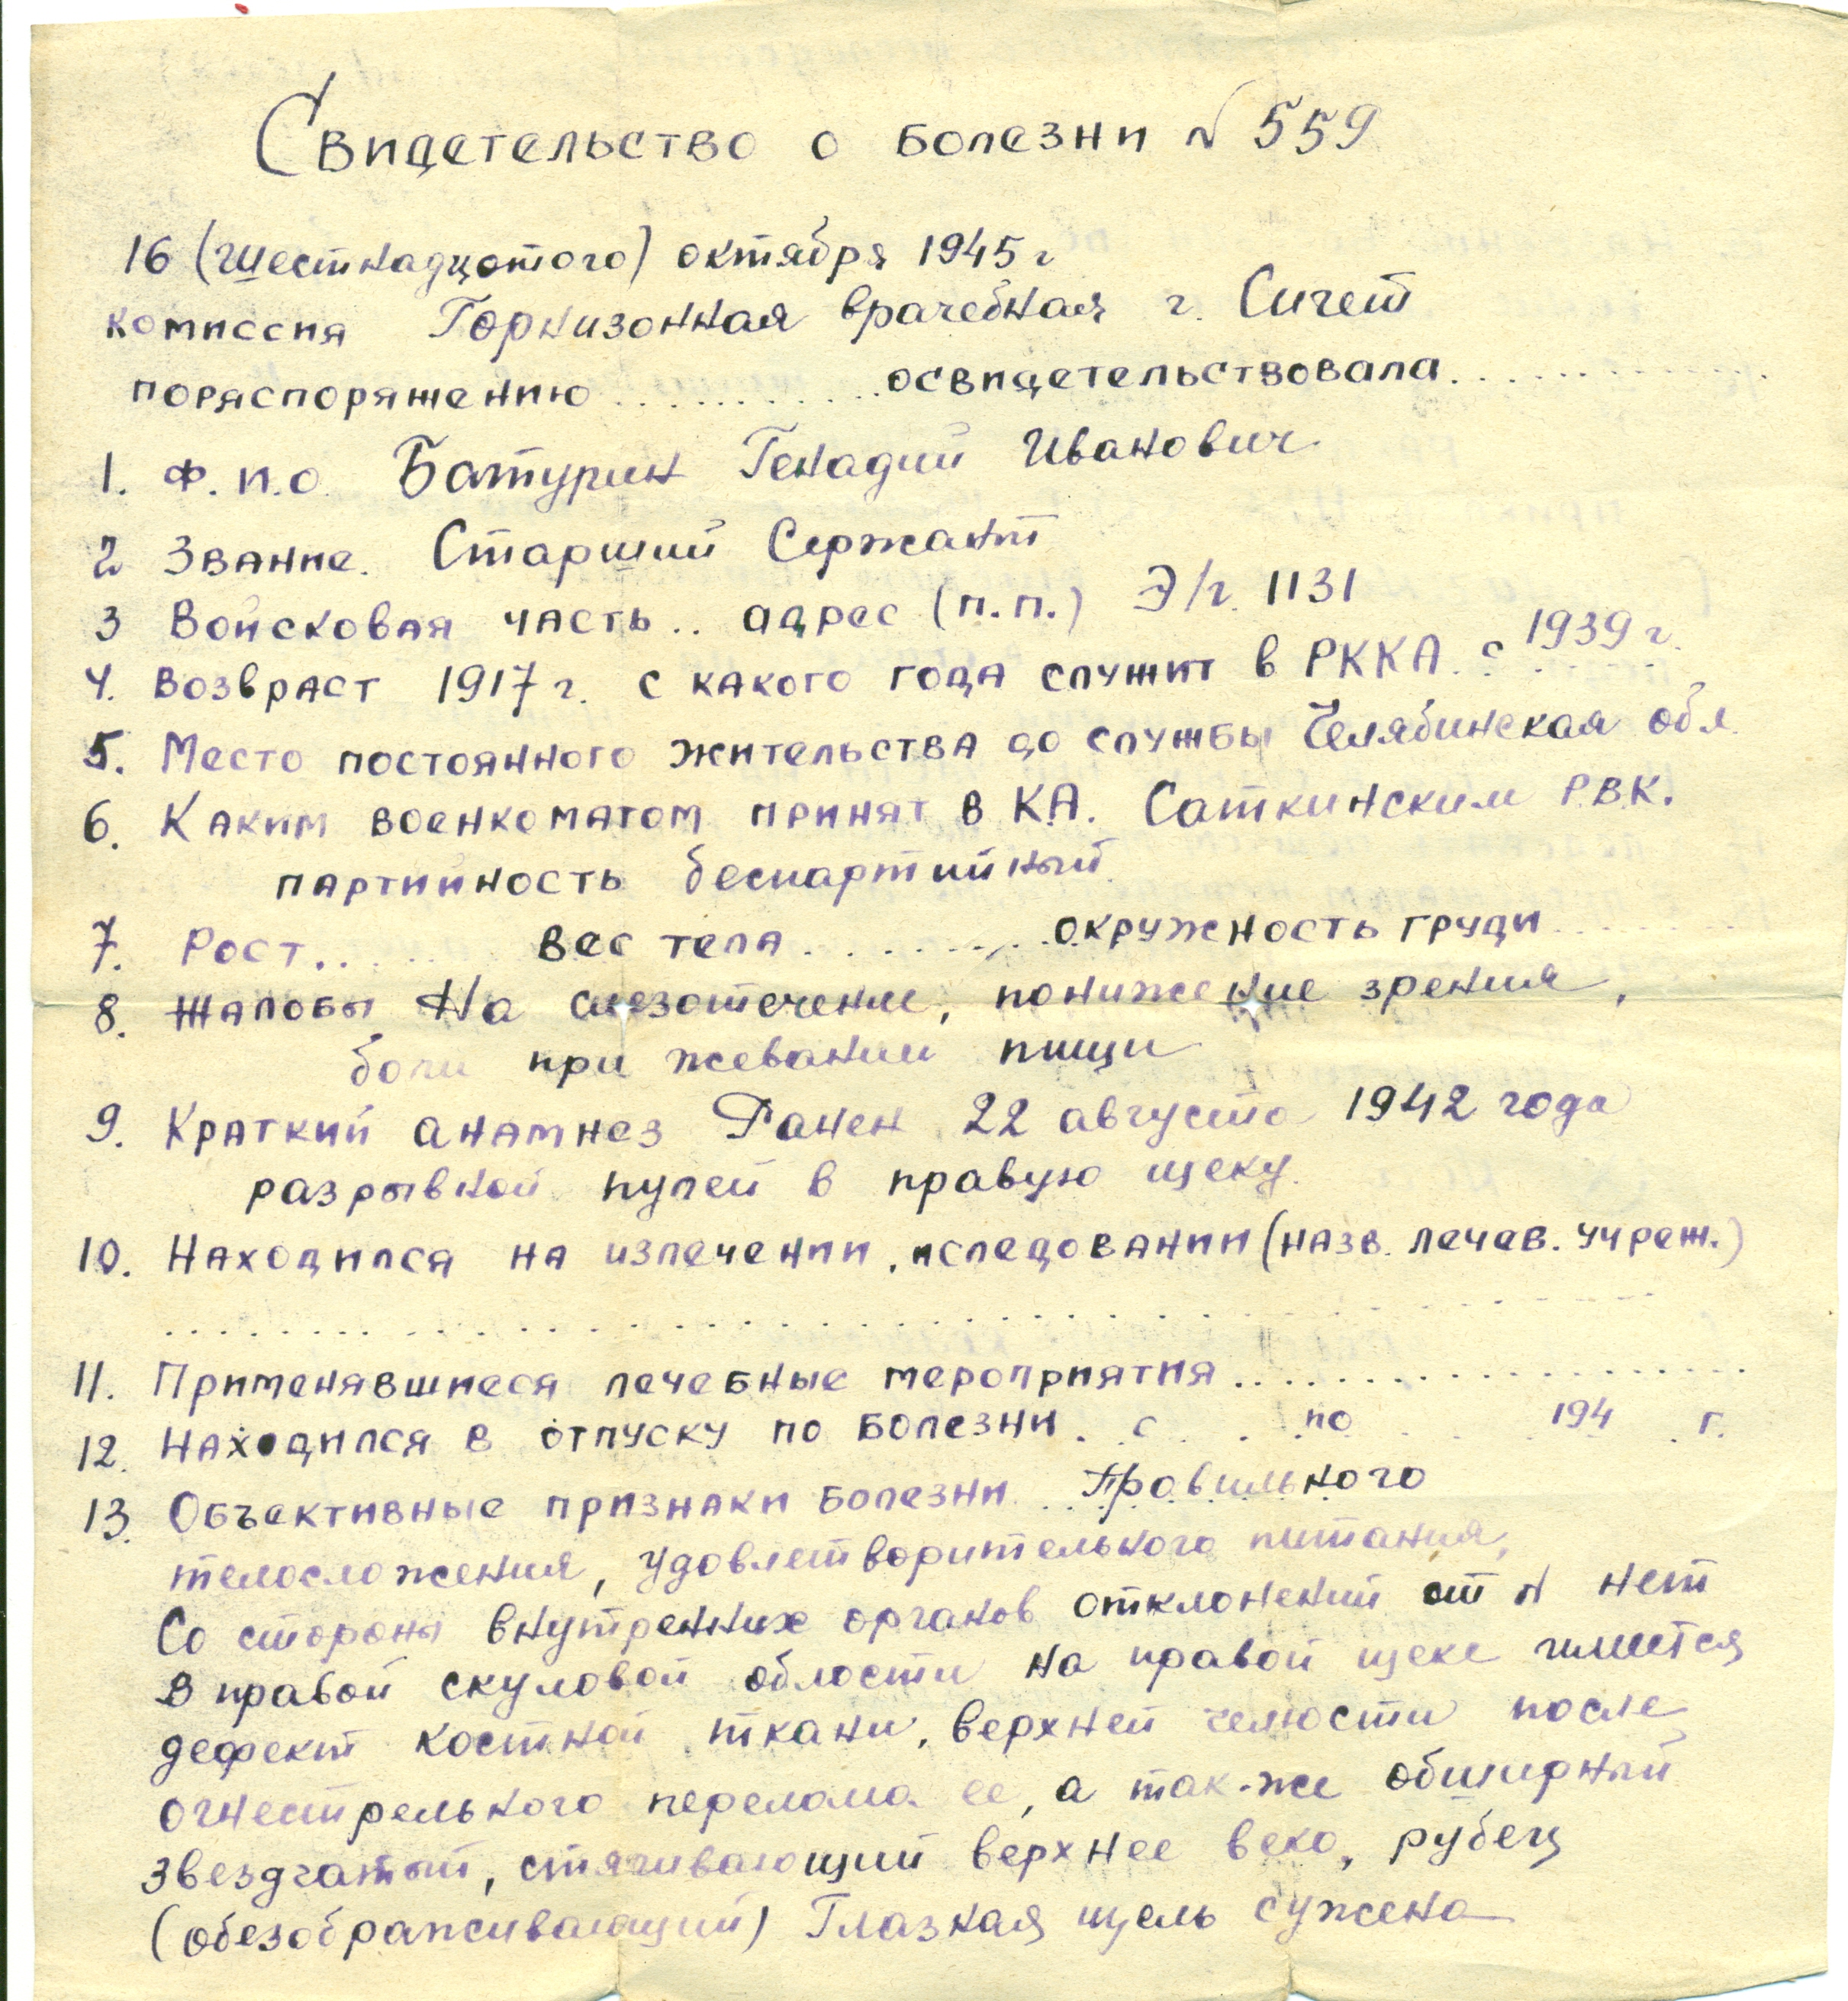 Свидетельство о болезни № 559
16 (шестнадцатого) октября 1945 г
комиссия Гарнизонная врачебная г. Сигет
пораспоряжению ............ освидетельствовала..............
1. Ф.И.О. Батурин Генадий Иванович
2 Звание. Старший Сержант
3 Войсковая часть.. адрес (п.п.) Э/г. 1131
4. Возвраст 1917 г. с какого года служит в РККА. с 1939 г.
5. Место постоянного жительства до службы Челябинская обл.
6. Каким военкоматом принят в К.А. Саткинским Р.В.К.
партийность беспартийный.
7. Рост........ вес тела............ окружность груди........
8. Жалобы На слезотечение, понижение зрения,
боли при жевании пищи
9. Краткий анамнез Ранен 22 августа 1942 года
разрывной пулей в правую щеку.
10. Находился на излечении, иследовании (назв. лечев. учреж.)
........................................
11. Применявшиеся лечебные мероприятия...................
12. Находился в отпуску по болезни. . с . . по . . . 194 . г.
13. Объективные признаки болезни. Правильного
телосложения, удовлетворительного питания,
Со стороны внутренних органов отклонений от N нет
В правой скуловой области на правой щеке имеется
дефект костной ткани, верхней челюсти после
огнестрельного перелома ее, а так-же обширный
звездчатый, стягивающий верхнее веко, рубец
(обезображивающий) Глазная щель сужена